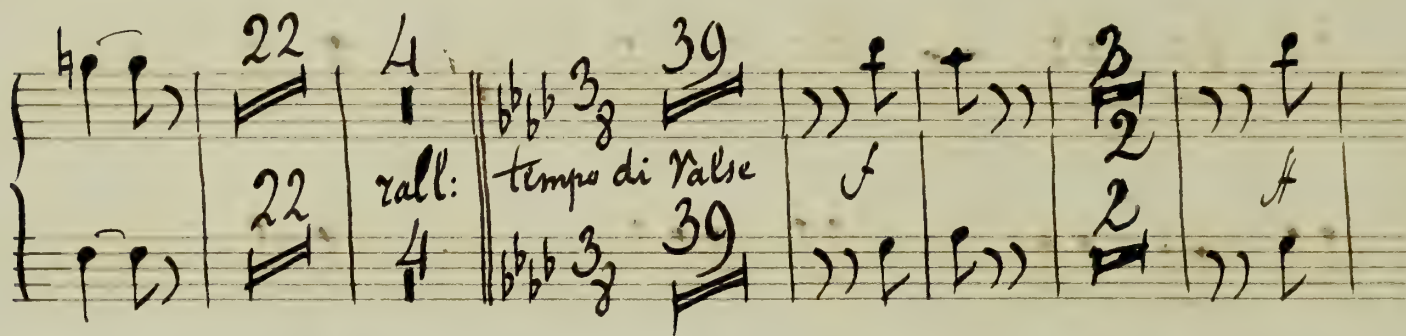 22 4 3 8 39 2 2
rall: tempo di Valse f ff
22 4 3 8 39 2